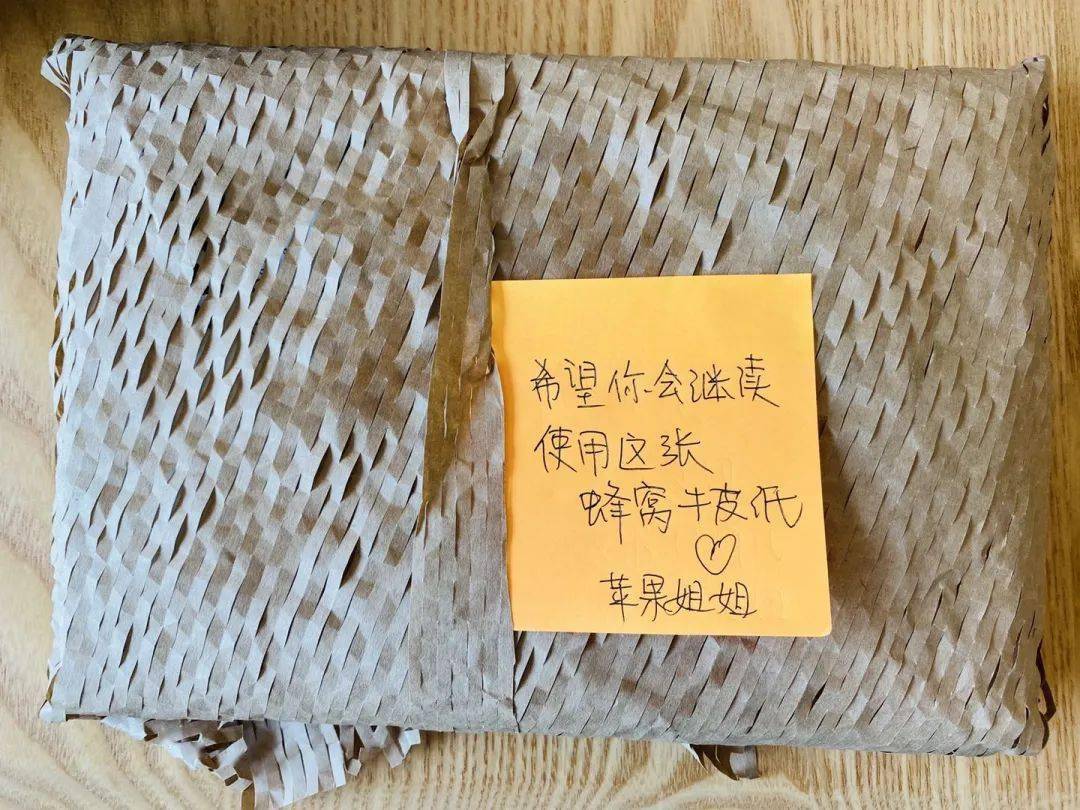 希望你会继续
使用这张
蜂窝牛皮纸
♡
苹果姐姐